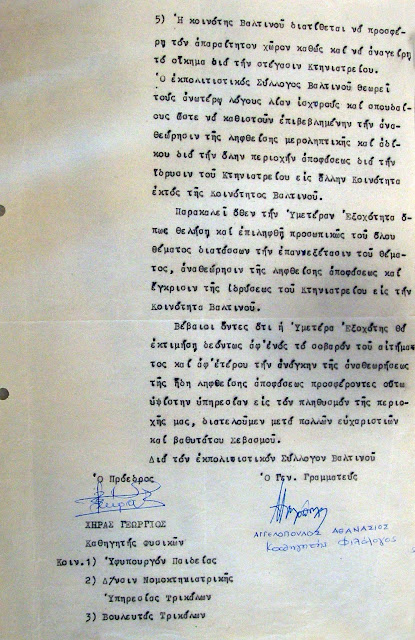 5) Ἡ κοινότης Βαλτινοῦ διατίθεται νά προσφέ-
ρῃ τόν ἀπαραίτητον χῶρον καθώς καί νά ἀναγείρῃ
τό οἴκημα διά τήν στέγασιν Κτηνιατρείου.
Ὁ ἐκπολιτιστικός Σύλλογος Βαλτινοῦ θεωρεῖ
τούς ἀνωτέρῳ λόγους λίαν ἰσχυρούς καί σπουδαί-
ους ὥστε νά καθιστοῦν ἐπιβεβλημένην τήν ἀνα-
θεώρησιν τῆς ληφθείσης μεροληπτικῆς καί ἀδί-
κου διά τήν ὅλην περιοχήν ἀποφάσεως διά τήν
ἵδρυσιν τοῦ Κτηνιατρείου εἰς ἄλλην Κοινότητα
ἐκτός τῆς Κοινότητος Βαλτινοῦ.
Παρακαλεῖ ὅθεν τήν Ὑμετέραν Ἐξοχότητα ὅ-
πως θελήσῃ καί ἐπιληφθῇ προσωπικῶς τοῦ ὅλου
θέματος διατάσσων τήν ἐπανεξέτασιν τοῦ θέμα-
τος, ἀναθεώρησιν τῆς ληφθείσης ἀποφάσεως καί
ἔγκρισιν τῆς ἱδρύσεως τοῦ Κτηνιατρείου εἰς τήν
Κοινότητα Βαλτινοῦ.
Βέβαιοι ὄντες ὅτι ἡ Ὑμετέρα Ἐξοχότης θά
ἐκτιμήσῃ δεόντως ἀφ'ἑνός τό σοβαρόν τοῦ αἰτήμα
τος καί ἀφ'ἑτέρου τήν ἀνάγκην τῆς ἀναθεωρήσεως
τῆς ἤδη ληφθείσης ἀποφάσεως προσφέροντες οὕτω
ὑψίστην ὑπηρεσίαν εἰς τόν πληθυσμόν τῆς περιο-
χῆς μας, διατελοῦμεν μετά πολλῶν εὐχαριστιῶν
καί βαθυτάτου Σεβασμοῦ.
Διά τόν ἐκπολιτιστικόν Σύλλογον Βαλτινοῦ
Ὁ Πρόεδρος Ὁ Γεν. Γραμματεύς
ΧΗΡΑΣ ΓΕΩΡΓΙΟΣ
ΑΓΓΕΛΟΠΟΥΛΟΣ ΑΘΑΝΑΣΙΟΣ
Καθηγητής Φυσικῶν
Καθηγητής Φιλόλογος
Κοιν.1) Ὑφυπουργόν Παιδείας
2) Δ/νσιν Νομοκτηνιατρικῆς
Ὑπηρεσίας Τρικάλων
3) Βουλευτάς Τρικάλων